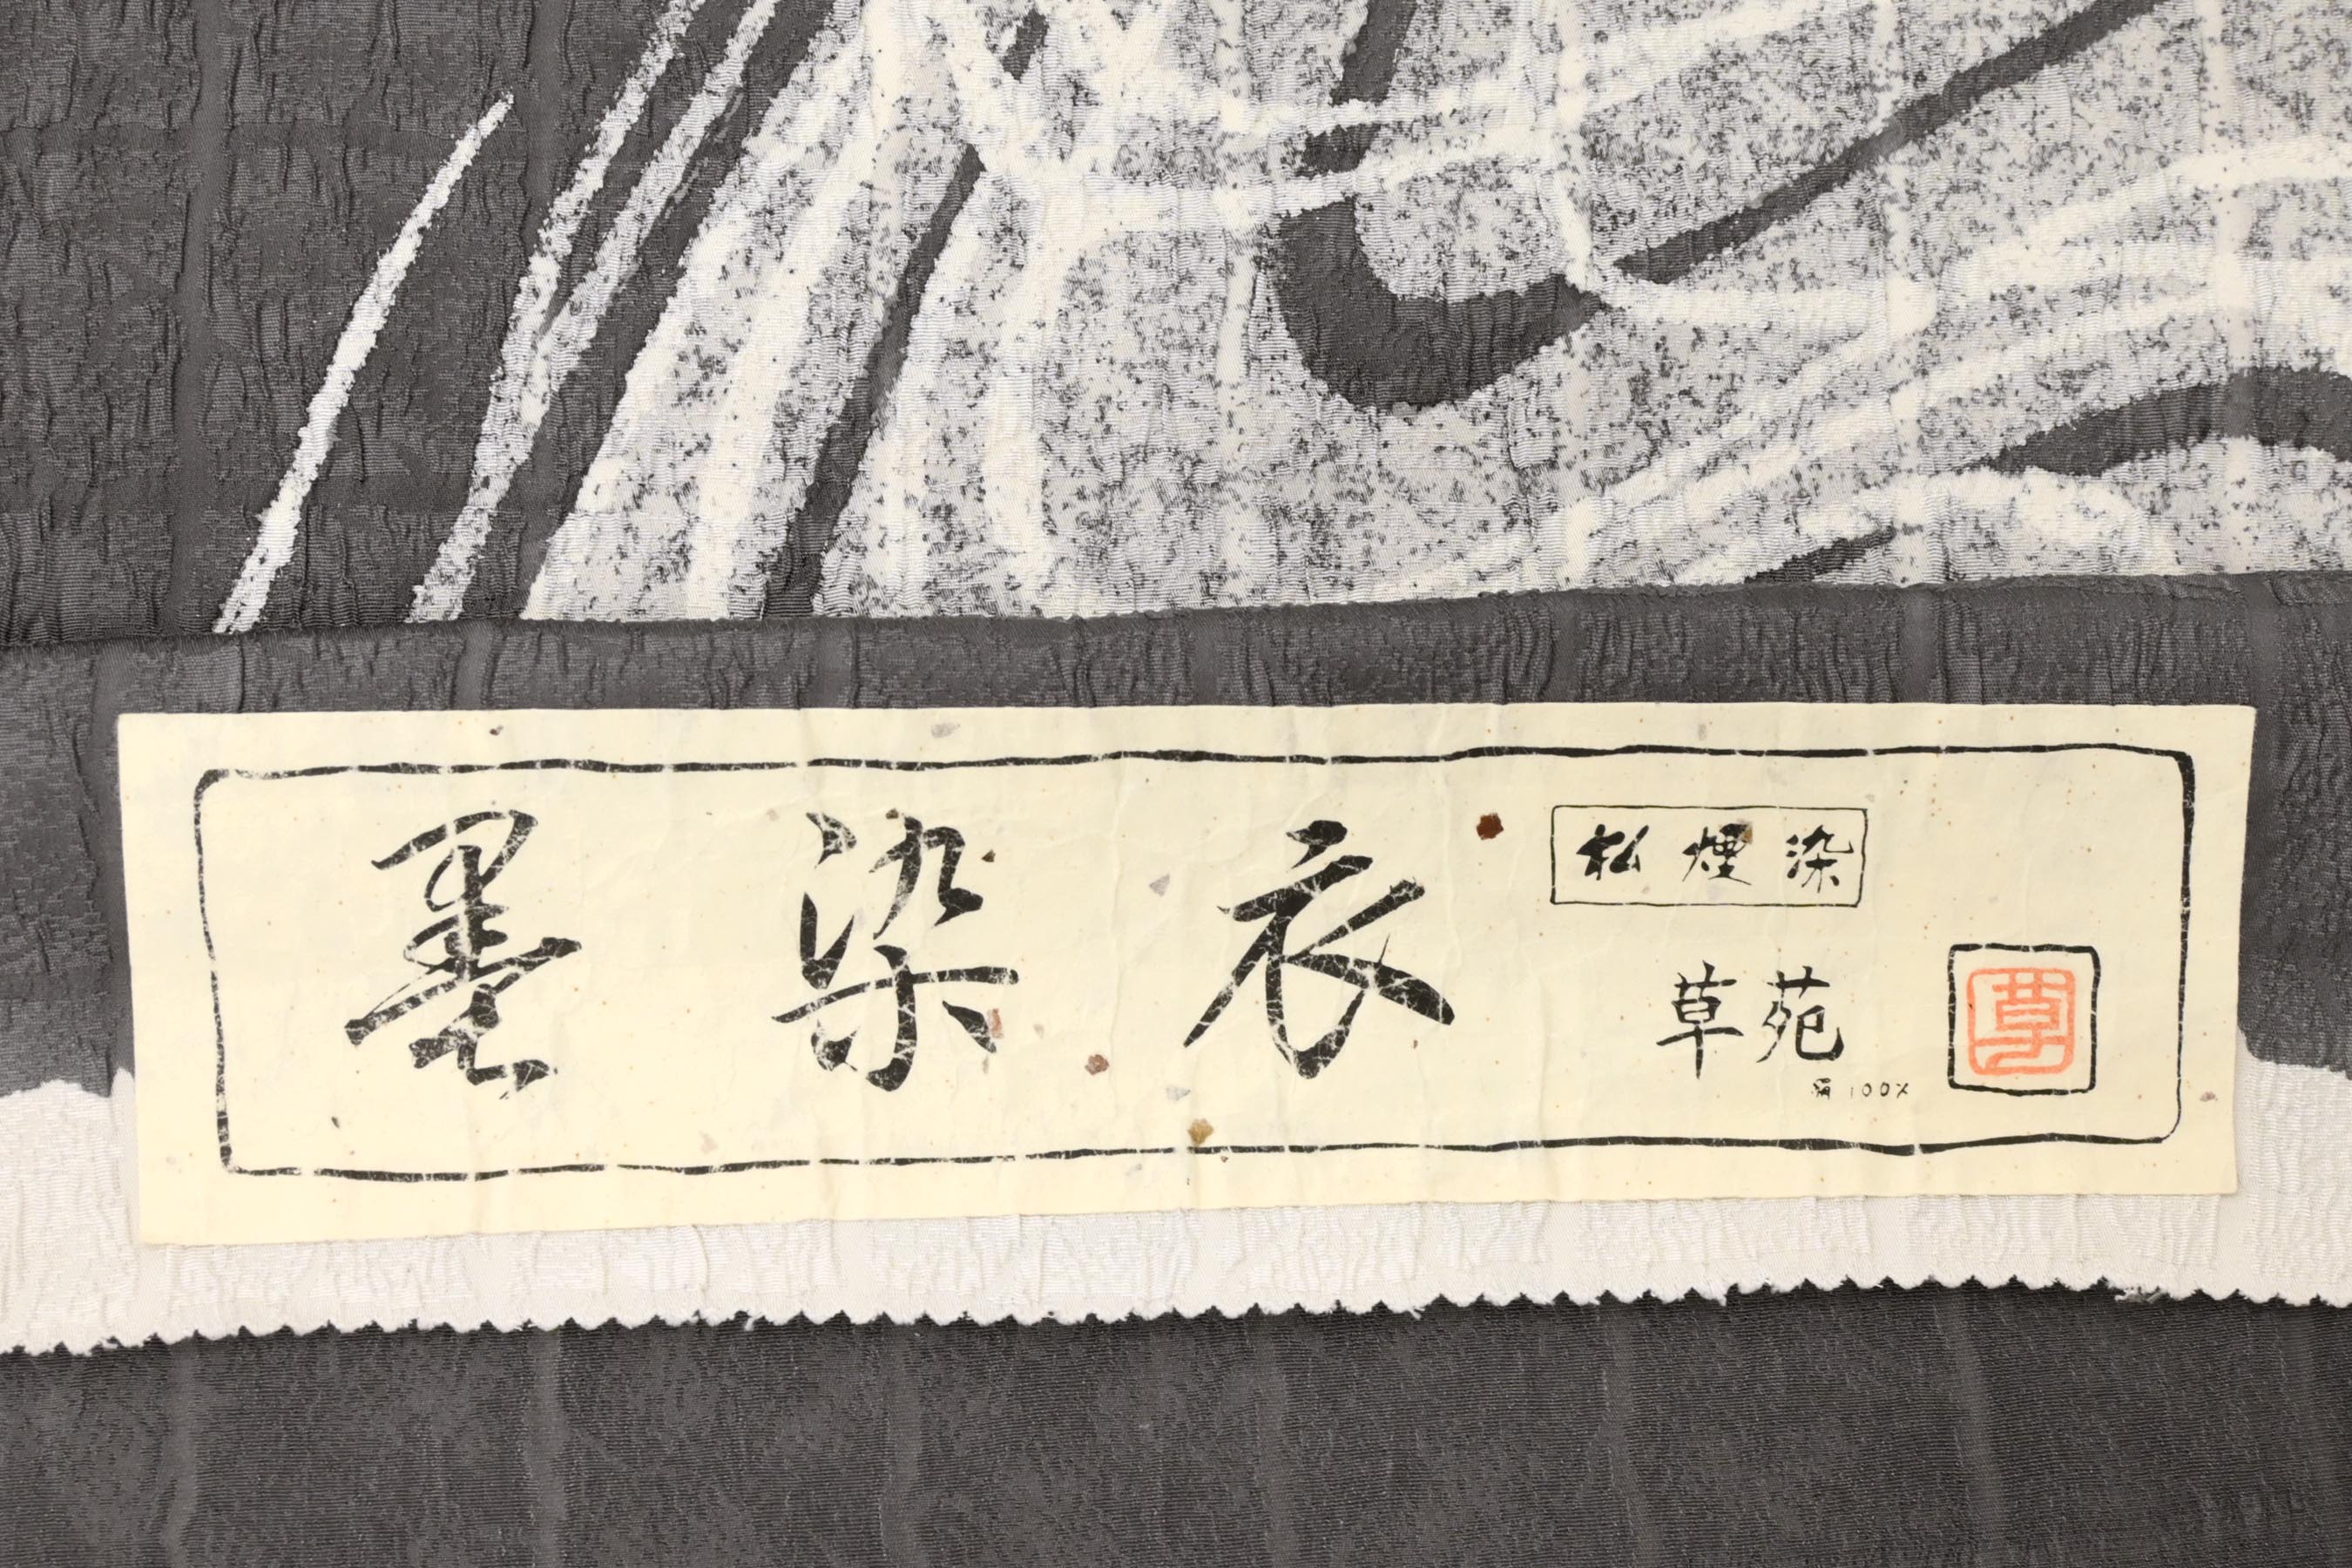 墨染衣
松煙染
草苑
絹100%
草